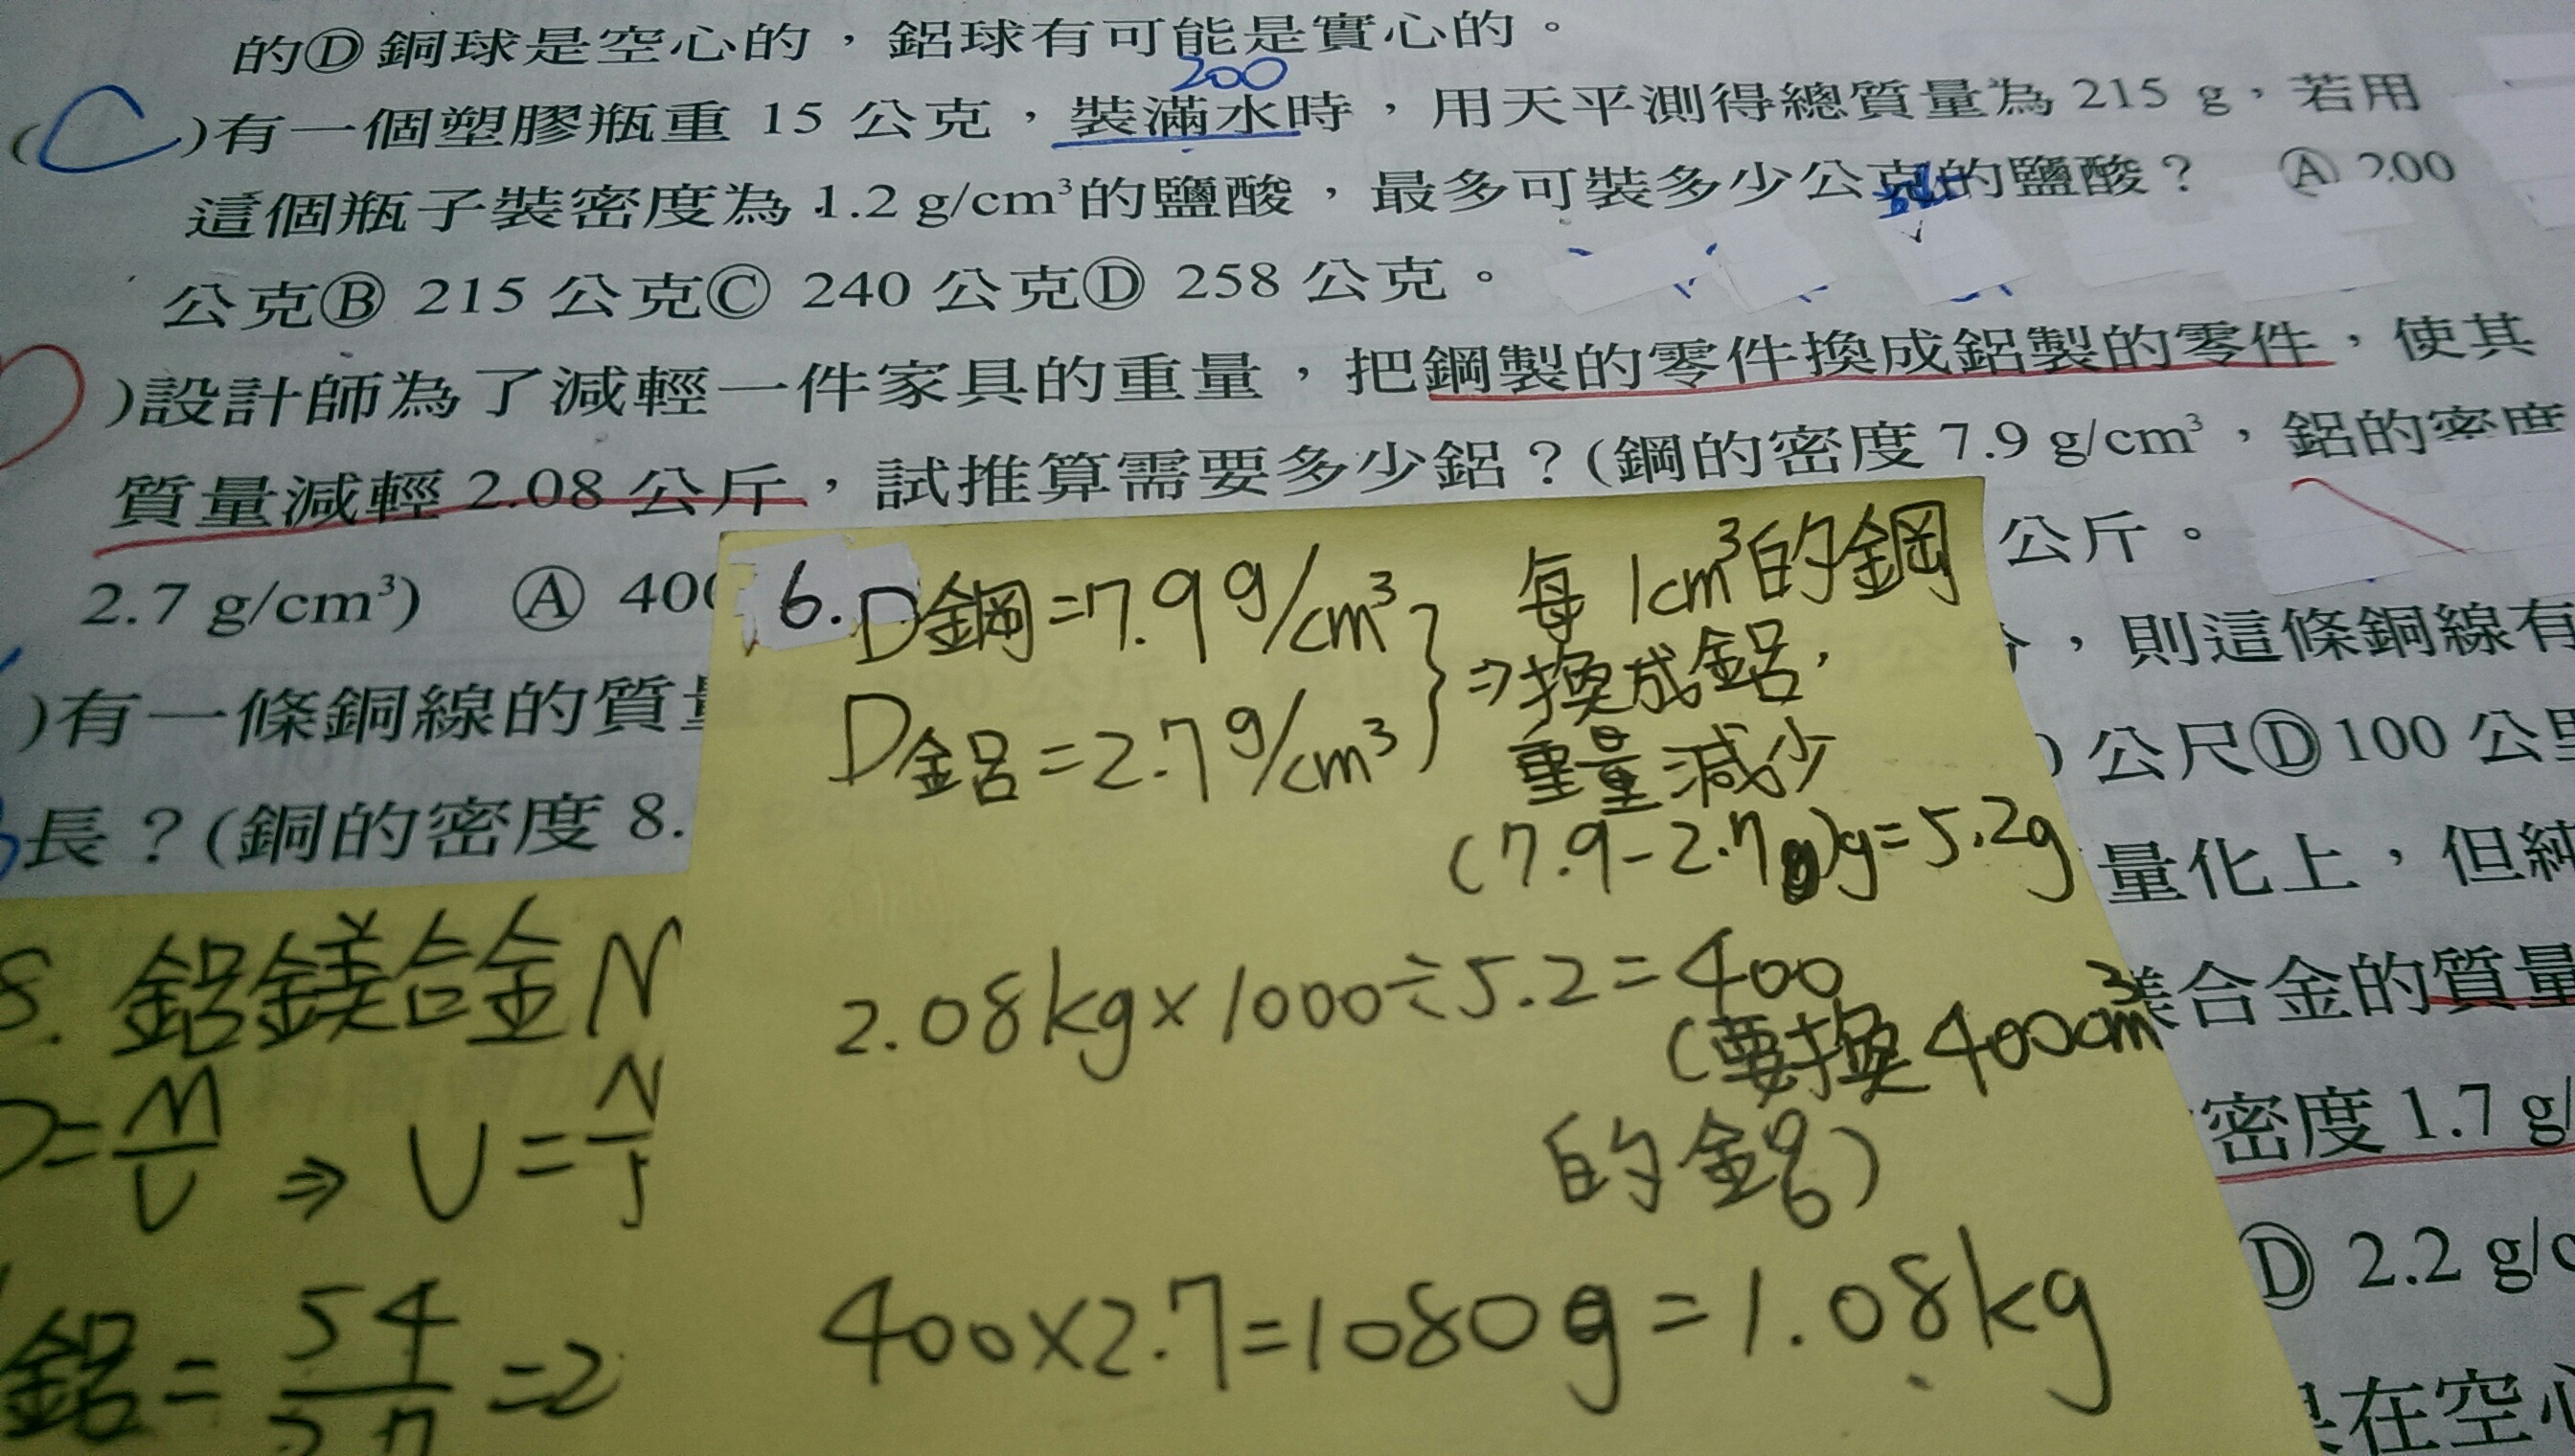 的Ⓓ銅球是空心的，鋁球有可能是實心的。
200
(C)有一個塑膠瓶重 15 公克，裝滿水時，用天平測得總質量為 215 g，若用
這個瓶子裝密度為 1.2 g/cm³的鹽酸，最多可裝多少公克的鹽酸？ Ⓐ 200
公克Ⓑ 215 公克Ⓒ 240 公克Ⓓ 258 公克。
)設計師為了減輕一件家具的重量，把鋼製的零件換成鋁製的零件，使其
質量減輕 2.08 公斤，試推算需要多少鋁？(鋼的密度 7.9 g/cm³，鋁的密度
2.7 g/cm³) Ⓐ 400
公斤。
)有一條銅線的質量
，則這條銅線有
長？(銅的密度 8.
公尺Ⓓ 100 公里
量化上，但純
美合金的質量
密度 1.7 g/
Ⓓ 2.2 g/c
在空心
6. D鋼=7.9g/cm³
D鋁=2.7g/cm³
} ⇒ 每1cm³的鋼
換成鋁，
重量減少
(7.9-2.7)g=5.2g
2.08kg×1000÷5.2=400
(要換400cm³
的鋁)
400×2.7=1080g=1.08kg
8. 鋁鎂合金
D=M/V ⇒ V=
鋁=54/2.7=2